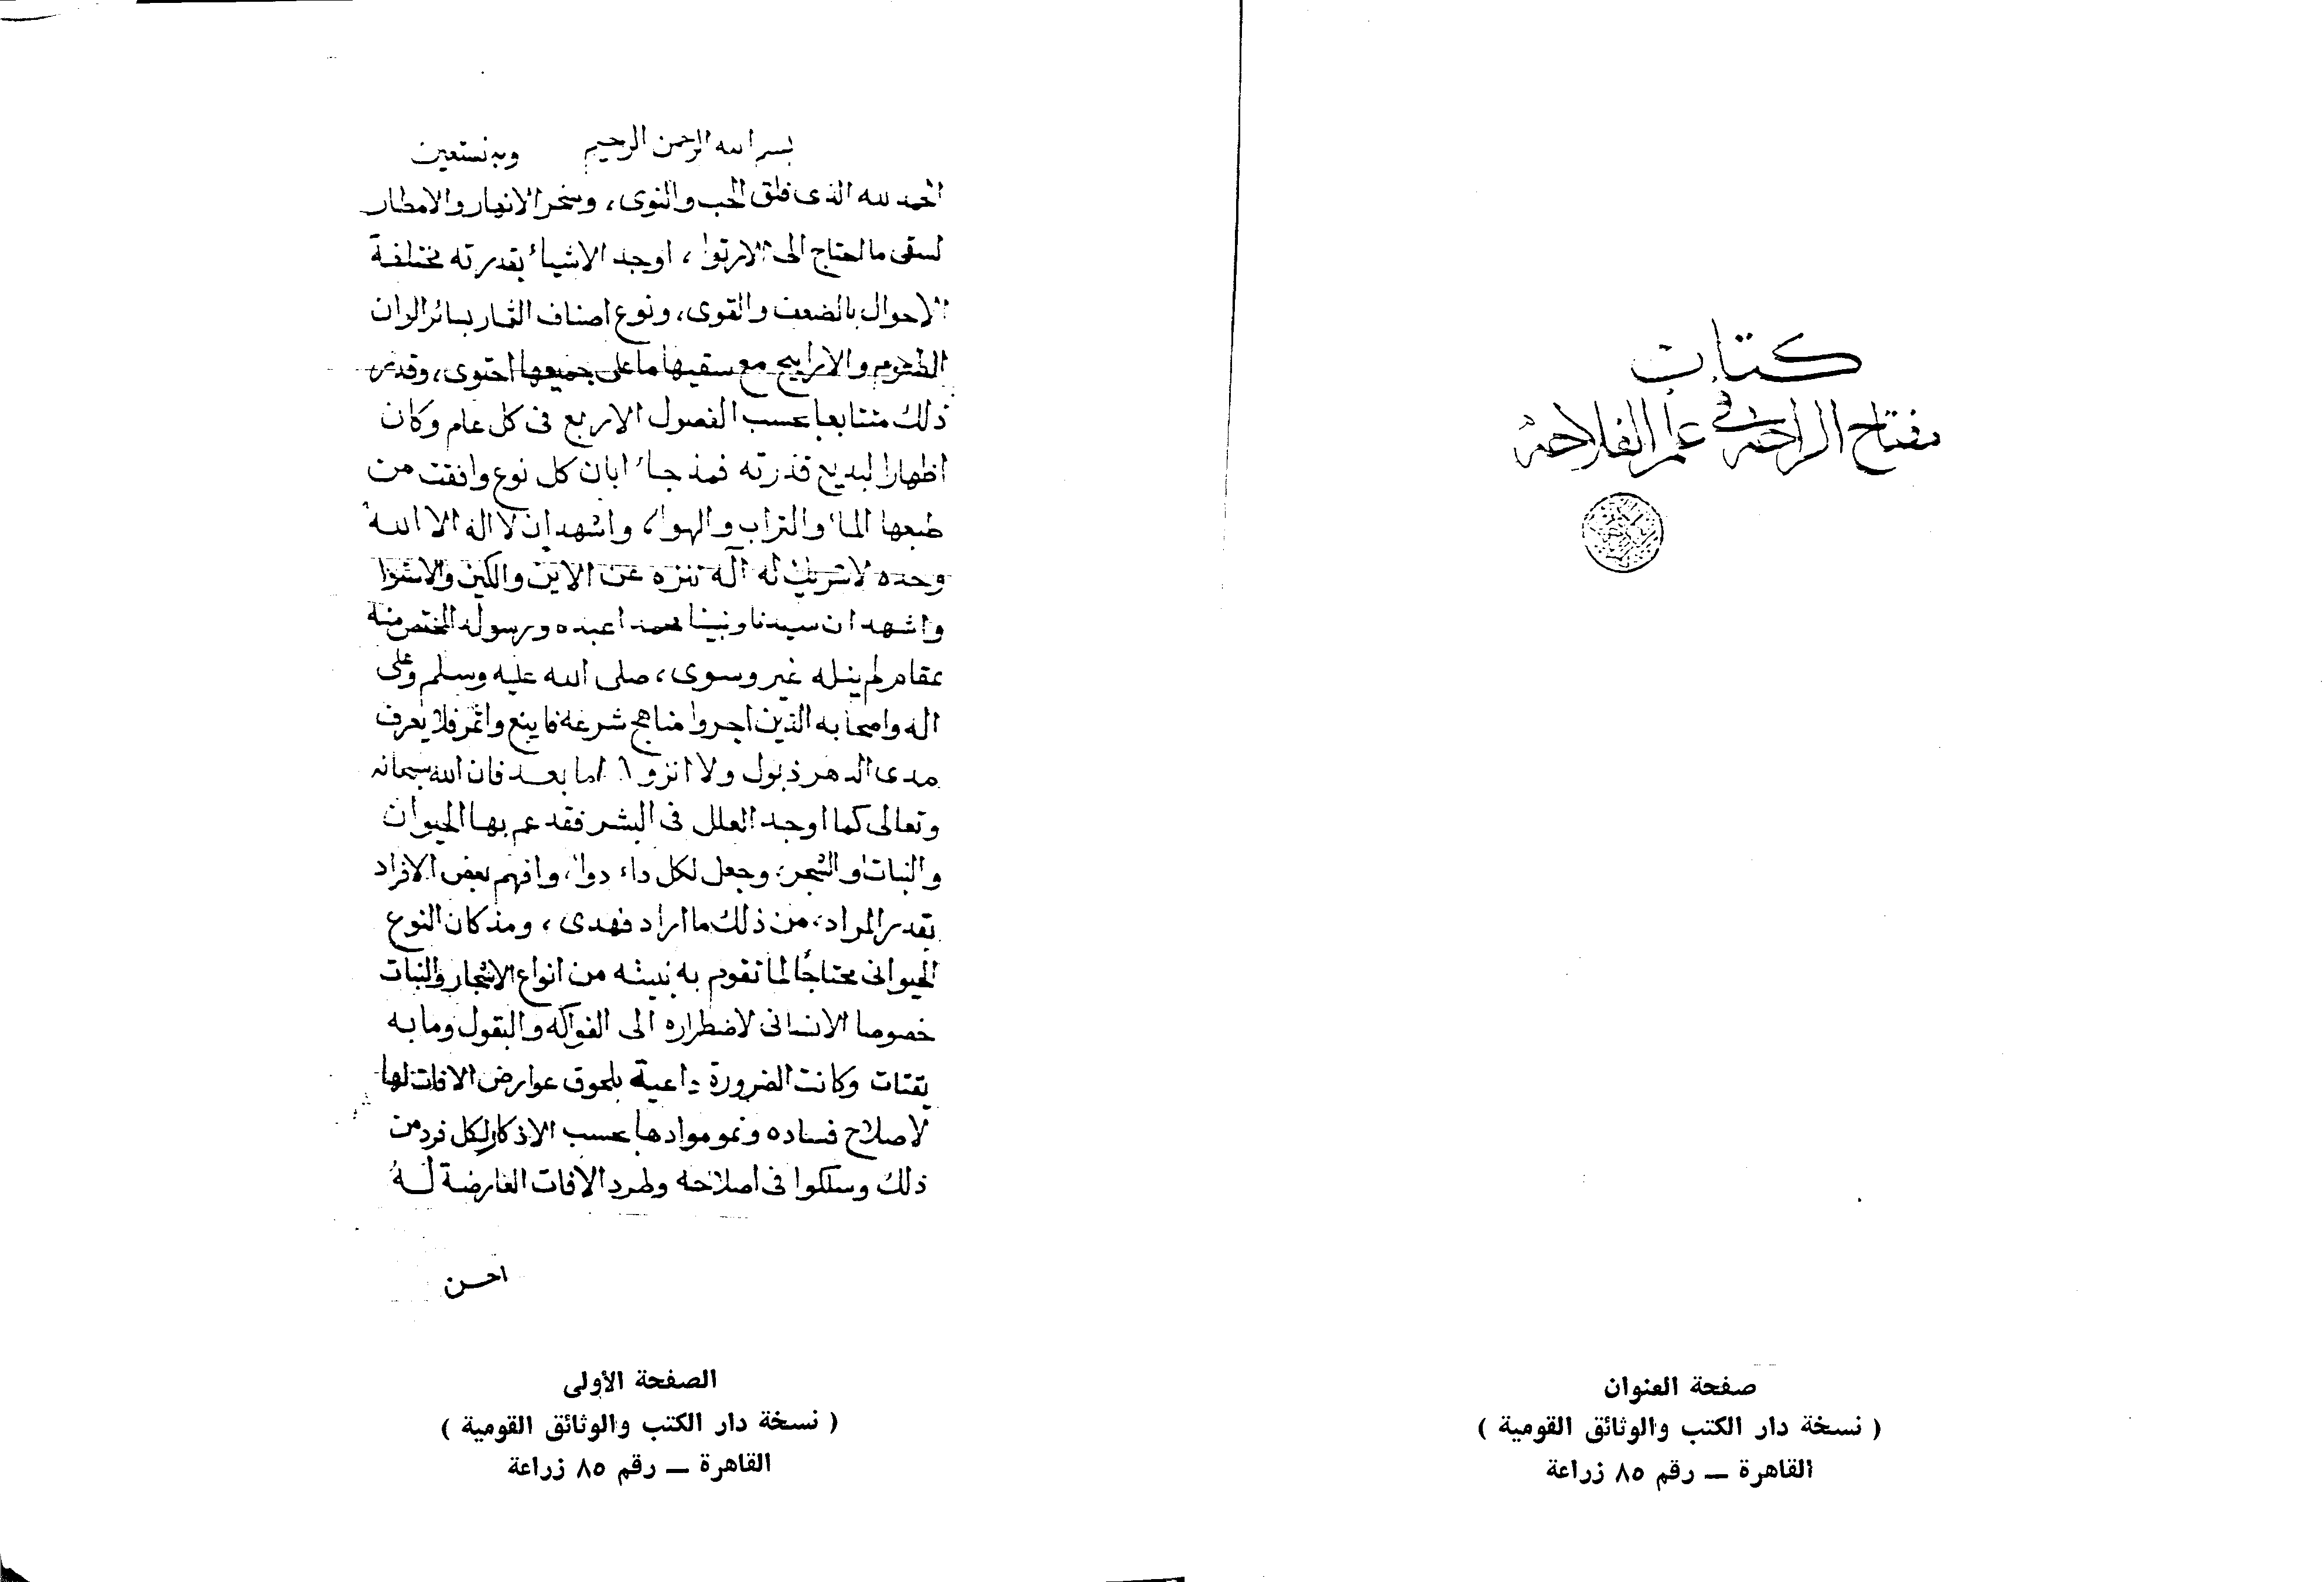 كتاب
مفتاح الراحة في علم الفلاحة
صفحة العنوان
( نسخة دار الكتب والوثائق القومية )
القاهرة — رقم ٨٥ زراعة
بسم الله الرحمن الرحيم وبه نستعين
الحمد لله الذى فلق الحب والنوى، وسخر الانهار والامطار
لسقى ما احتاج الى الارتوا، اوجد الاشياء بقدرته مختلفة
الاحوال بالضعف والقوى، ونوع اصناف الثمار بسائر الوان
الطعوم والاراييح مع سقيها ما على جميعها احتوى، وقدر
ذلك متتابعا بحسب الفصول الاربع فى كل عام وكان
اظهارا لبديع قدرته فمذ جاء ابان كل نوع وافقت من
طبعها الماء والتراب والهواء، واشهد ان لا اله الا الله
وحده لا شريك له اله تنزه عن الاين والكين والاستوا
واشهد ان سيدنا ونبينا محمدا عبده ورسوله المختص منه
بمقام لم ينله غير وسوى، صلى الله عليه وسلم وعلى
اله واصحابه الذين اجروا مناهج شرعه فاينع واثمر فلا يعرف
مدى الدهر ذبول ولا انزوا اما بعد فان الله سبحانه
وتعالى كما اوجد العلل فى البشر فقد عم بها الحيوان
والنبات والشجر، وجعل لكل داء دواء، وافهم بعض الافراد
بقدر المراد، من ذلك ما اراد فهدى، ومذ كان النوع
الحيوانى محتاجًا لما تقوم به بنيته من انواع الاشجار والنبات
خصوصا الانسانى لاضطراره الى الفواكه والبقول وما به
يقتات وكانت الضرورة داعية بلحوق عوارض الافات لها
لاصلاح فساده ونمو موادها بحسب الاذكار لكل فرد من
ذلك وسلكوا فى اصلاحه وطرد الافات العارضة له
احسن
الصفحة الأولى
( نسخة دار الكتب والوثائق القومية )
القاهرة — رقم ٨٥ زراعة